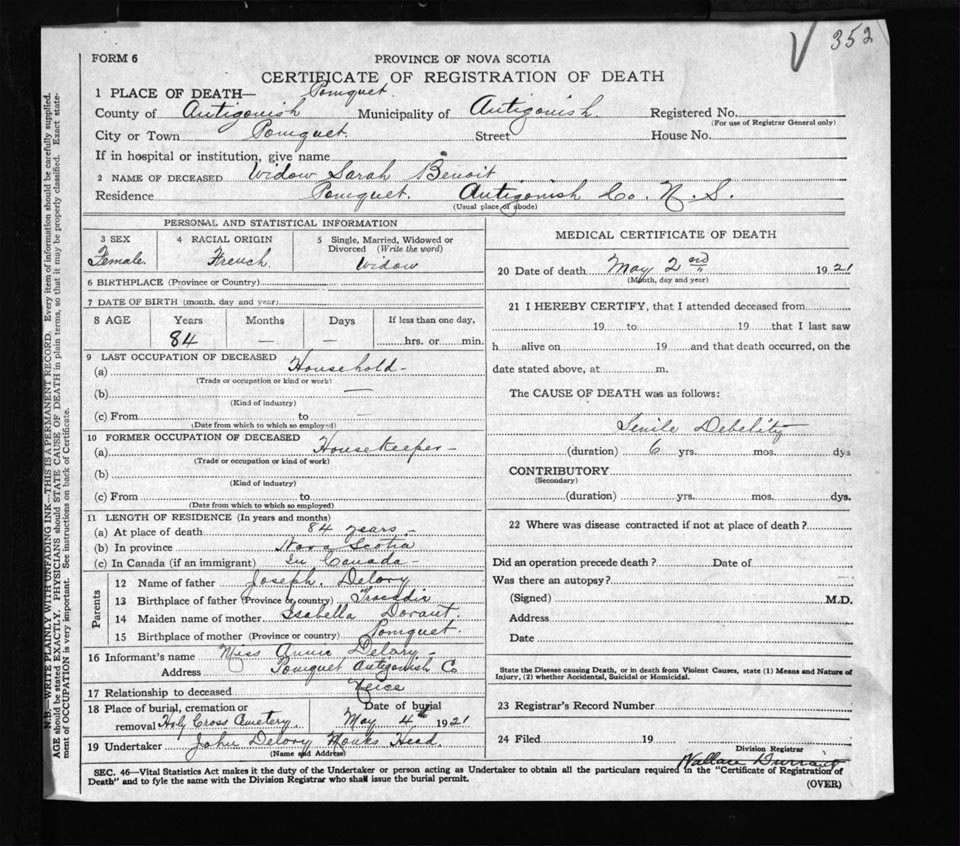 352
FORM 6
PROVINCE OF NOVA SCOTIA
CERTIFICATE OF REGISTRATION OF DEATH
1 PLACE OF DEATH— Pomquet
County of Antigonish Municipality of Antigonish. Registered No.
(For use of Registrar General only)
City or Town Pomquet. Street House No.
If in hospital or institution, give name
2 NAME OF DECEASED Widow Sarah Benoit
Residence Pomquet. Antigonish Co. N. S.
(Usual place of abode)
PERSONAL AND STATISTICAL INFORMATION
3 SEX 4 RACIAL ORIGIN 5 Single, Married, Widowed or
Divorced (Write the word)
Female. French. Widow
6 BIRTHPLACE (Province or Country)
7 DATE OF BIRTH (month, day and year)
8 AGE Years Months Days If less than one day,
84 — — hrs. or min.
9 LAST OCCUPATION OF DECEASED
(a) Household -
(Trade or occupation or kind or work)
(b) —
(Kind of industry)
(c) From to
(Date from which to which so employed)
10 FORMER OCCUPATION OF DECEASED
(a) Housekeeper -
(Trade or occupation or kind or work)
(b)
(Kind of industry)
(c) From to
(Date from which to which so employed)
11 LENGTH OF RESIDENCE (In years and months)
(a) At place of death 84 years -
(b) In province Nova Scotia
(c) In Canada (if an immigrant) In Canada -
Parents
12 Name of father Joseph. Delory
13 Birthplace of father (Province or country) Tracadie
14 Maiden name of mother Isabella Dorant.
15 Birthplace of mother (Province or country) Pomquet.
16 Informant's name Miss Annie Delory -
Address Pomquet Antigonish Co
17 Relationship to deceased Neice
18 Place of burial, cremation or Date of burial
removal Holy Cross Cemetery. May 4th 1921
19 Undertaker John Delory Monks Head.
(Name and Address)
MEDICAL CERTIFICATE OF DEATH
20 Date of death May 2nd 1921
(Month, day and year)
21 I HEREBY CERTIFY, that I attended deceased from
19 to 19 that I last saw
h alive on 19 and that death occurred, on the
date stated above, at m.
The CAUSE OF DEATH was as follows:
Senile Debelity
(duration) 6 yrs. mos. dys
CONTRIBUTORY
(Secondary)
(duration) yrs. mos. dys.
22 Where was disease contracted if not at place of death?
Did an operation precede death? Date of
Was there an autopsy?
(Signed) M.D.
Address
Date
State the Disease causing Death, or in death from Violent Causes, state (1) Means and Nature of
Injury, (2) whether Accidental, Suicidal or Homicidal.
23 Registrar's Record Number
24 Filed 19
Division Registrar
Wallace Durrant
SEC. 46—Vital Statistics Act makes it the duty of the Undertaker or person acting as Undertaker to obtain all the particulars required in the "Certificate of Registration of
Death" and to fyle the same with the Division Registrar who shall issue the burial permit.
(OVER)
N.B.—WRITE PLAINLY WITH UNFADING INK—THIS IS A PERMANENT RECORD. Every item of information should be carefully supplied.
AGE should be stated EXACTLY. PHYSICIANS should STATE CAUSE OF DEATH in plain terms, so that it may be properly classified. Exact state-
ment of OCCUPATION is very important. See instructions on back of Certificate.